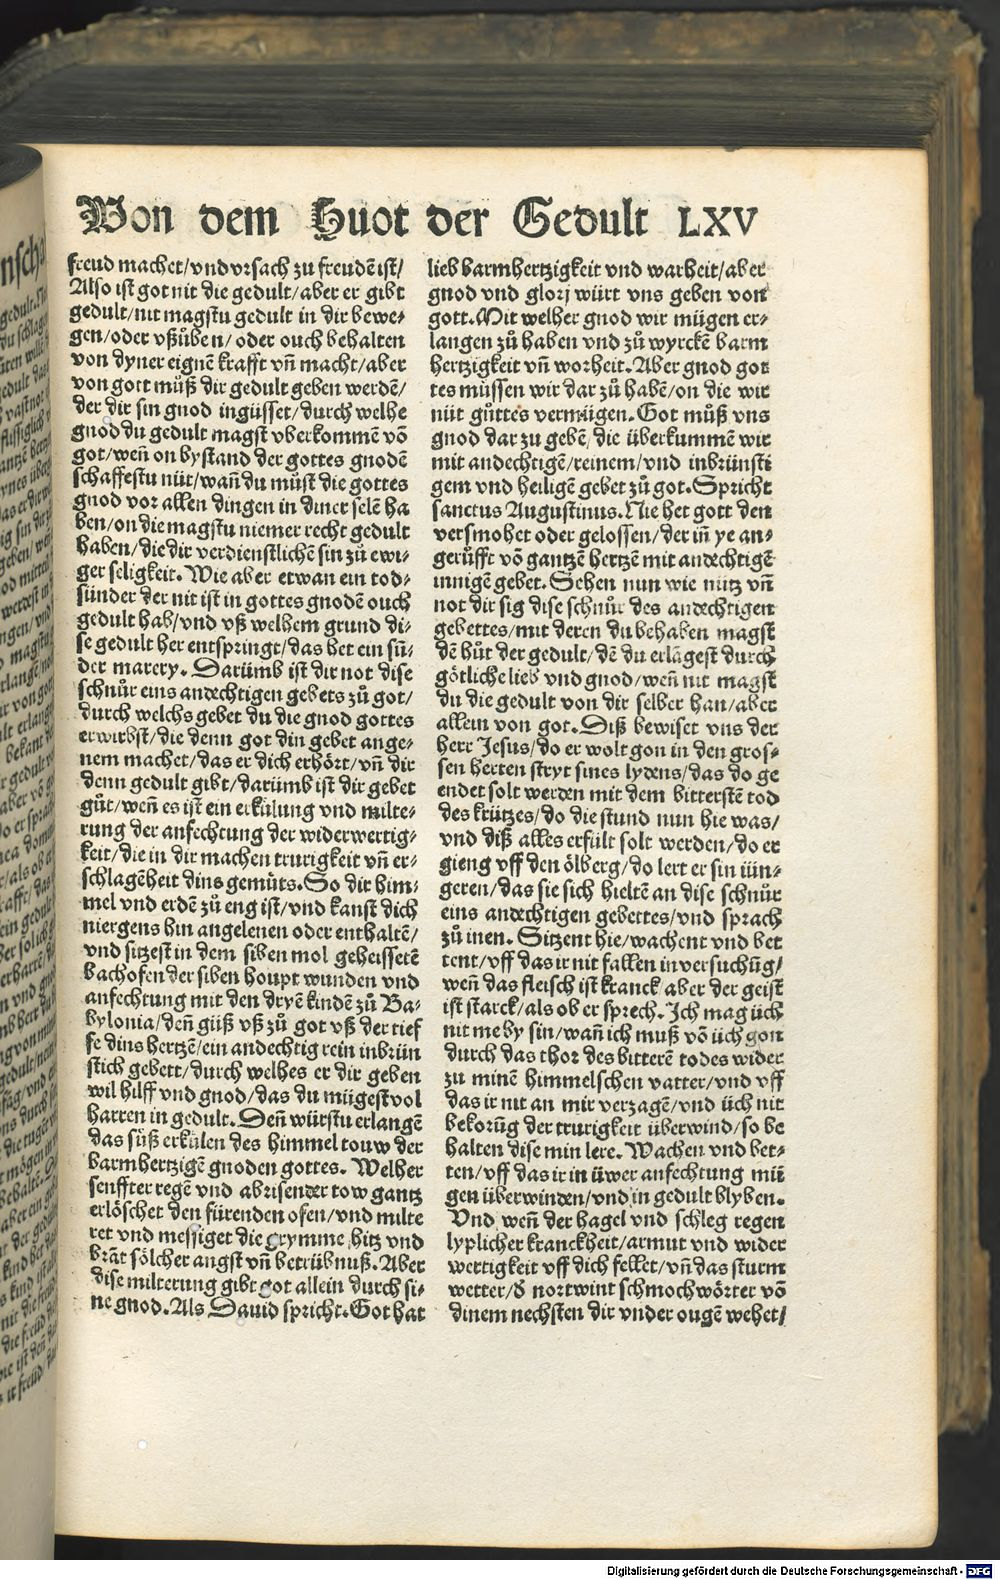 Von dem Huot der Gedult LXV
freud machet/vnd vrsach zu freudē ist/
Also ist got nit die gedult/aber er gibt
gedult/nit magstu gedult in dir bewe-
gen/oder vßüben/oder ouch behalten
von dyner eignē krafft vn̄ macht/aber
von gott müß dir gedult geben werdē/
der dir sin gnod ingüsset/durch welhe
gnod du gedult magst vberkommē vō
got/wen̄ on bystand der gottes gnodē
schaffestu nüt/wan̄ du můst die gottes
gnod vor allen dingen in diner selē ha
ben/on die magstu niemer recht gedult
haben/die dir verdienstlichē sin zů ewi-
ger seligkeit. Wie aber etwan ein tod-
sünder der nit ist in gottes gnodē ouch
gedult hab/vnd vß welhem grund di-
se gedult her entspringt/das het ein sü-
der marery. Darümb ist dir not dise
schnůr eins andechtigen gebets zů got/
durch welchs gebet du die gnod gottes
erwirbst/die denn got din gebet ange-
nem machet/das er dich erhört/vn̄ dir
denn gedult gibt/darümb ist dir gebet
gůt/wen̄ es ist ein erkülung vnd milte-
rung der anfechtung der widerwertig-
keit/die in dir machen trurigkeit vn̄ er-
schlagēheit dins gemüts. So dir him-
mel vnd erdē zů eng ist/vnd kanst dich
niergens hin angelenen oder enthaltē/
vnd sitzest in dem siben mol geheissetē
bachofen der siben houpt wunden vnd
anfechtung mit den dryē kindē zů Ba-
bylonia/den̄ güß vß zů got vß der tief
fe dins hertzē/ein andechtig rein inbrün
stich gebett/durch welhes er dir geben
wil hilff vnd gnod/das du mügest vol
harren in gedult. Den̄ würstu erlangē
das süß erkülen des himmel touw der
barmhertzigē gnoden gottes. Welher
senffter regē vnd abrisender tow gantz
erlöschet den fürenden ofen/vnd milte
ret vnd messiget die grymme hitz vnd
brāt sölcher angst vn̄ betrübnuß. Aber
dise milterung gibt got allein durch si-
ne gnod. Als Dauid spricht. Got hat
lieb barmhertzigkeit vnd warheit/aber
gnod vnd glorj würt vns geben von
gott. Mit welher gnod wir mügen er-
langen zů haben vnd zů wyrckē barm
hertzigkeit vn̄ worheit. Aber gnod got
tes müssen wir dar zů habē/on die wir
nüt gůttes vermügen. Got můß vns
gnod dar zu gebē/die überkummē wir
mit andechtigē/reinem/vnd inbrünsti
gem vnd heiligē gebet zů got. Spricht
sanctus Augustinus. Nie het gott den
versmohet oder gelossen/der in̄ ye an-
gerůfft vō gantzē hertzē mit andechtigē
innigē gebet. Sehen nun wie nütz vn̄
not dir sig dise schnůr des andechtigen
gebettes/mit deren du behaben magst
dē hůt der gedult/dē du erlāgest durch
götliche lieb vnd gnod/wen̄ nit magst
du die gedult von dir selber han/aber
allein von got. Diß bewiset vns der
herr Jesus/do er wolt gon in den gros-
sen herten stryt sines lydens/das do ge
endet solt werden mit dem bitterstē tod
des krützes/do die stund nun hie was/
vnd diß alles erfült solt werden/do er
gieng vff den ölberg/do lert er sin iün-
geren/das sie sich hieltē an dise schnůr
eins andechtigen gebettes/vnd sprach
zů inen. Sitzent hie/wachent vnd bet
tent/vff das ir nit fallen in versuchūg/
wen̄ das fleisch ist kranck aber der geist
ist starck/als ob er sprech. Ich mag üch
nit me by sin/wan̄ ich muß vō üch gon
durch das thor des bitterē todes wider
zu minē himmelschen vatter/vnd vff
das ir nit an mir verzagē/vnd üch nit
bekorūg der trurigkeit überwind/so be
halten dise min lere. Wachen vnd bet-
ten/vff das ir in üwer anfechtung mü
gen überwinden/vnd in gedult blyben.
Vnd wen̄ der hagel vnd schleg regen
lyplicher kranckheit/armut vnd wider
wertigkeit vff dich fellet/vn̄ das sturm
wetter/d̄ nortwint schmochwörter vō
dinem nechsten dir vnder ougē wehet/
Digitalisierung gefördert durch die Deutsche Forschungsgemeinschaft - DFG